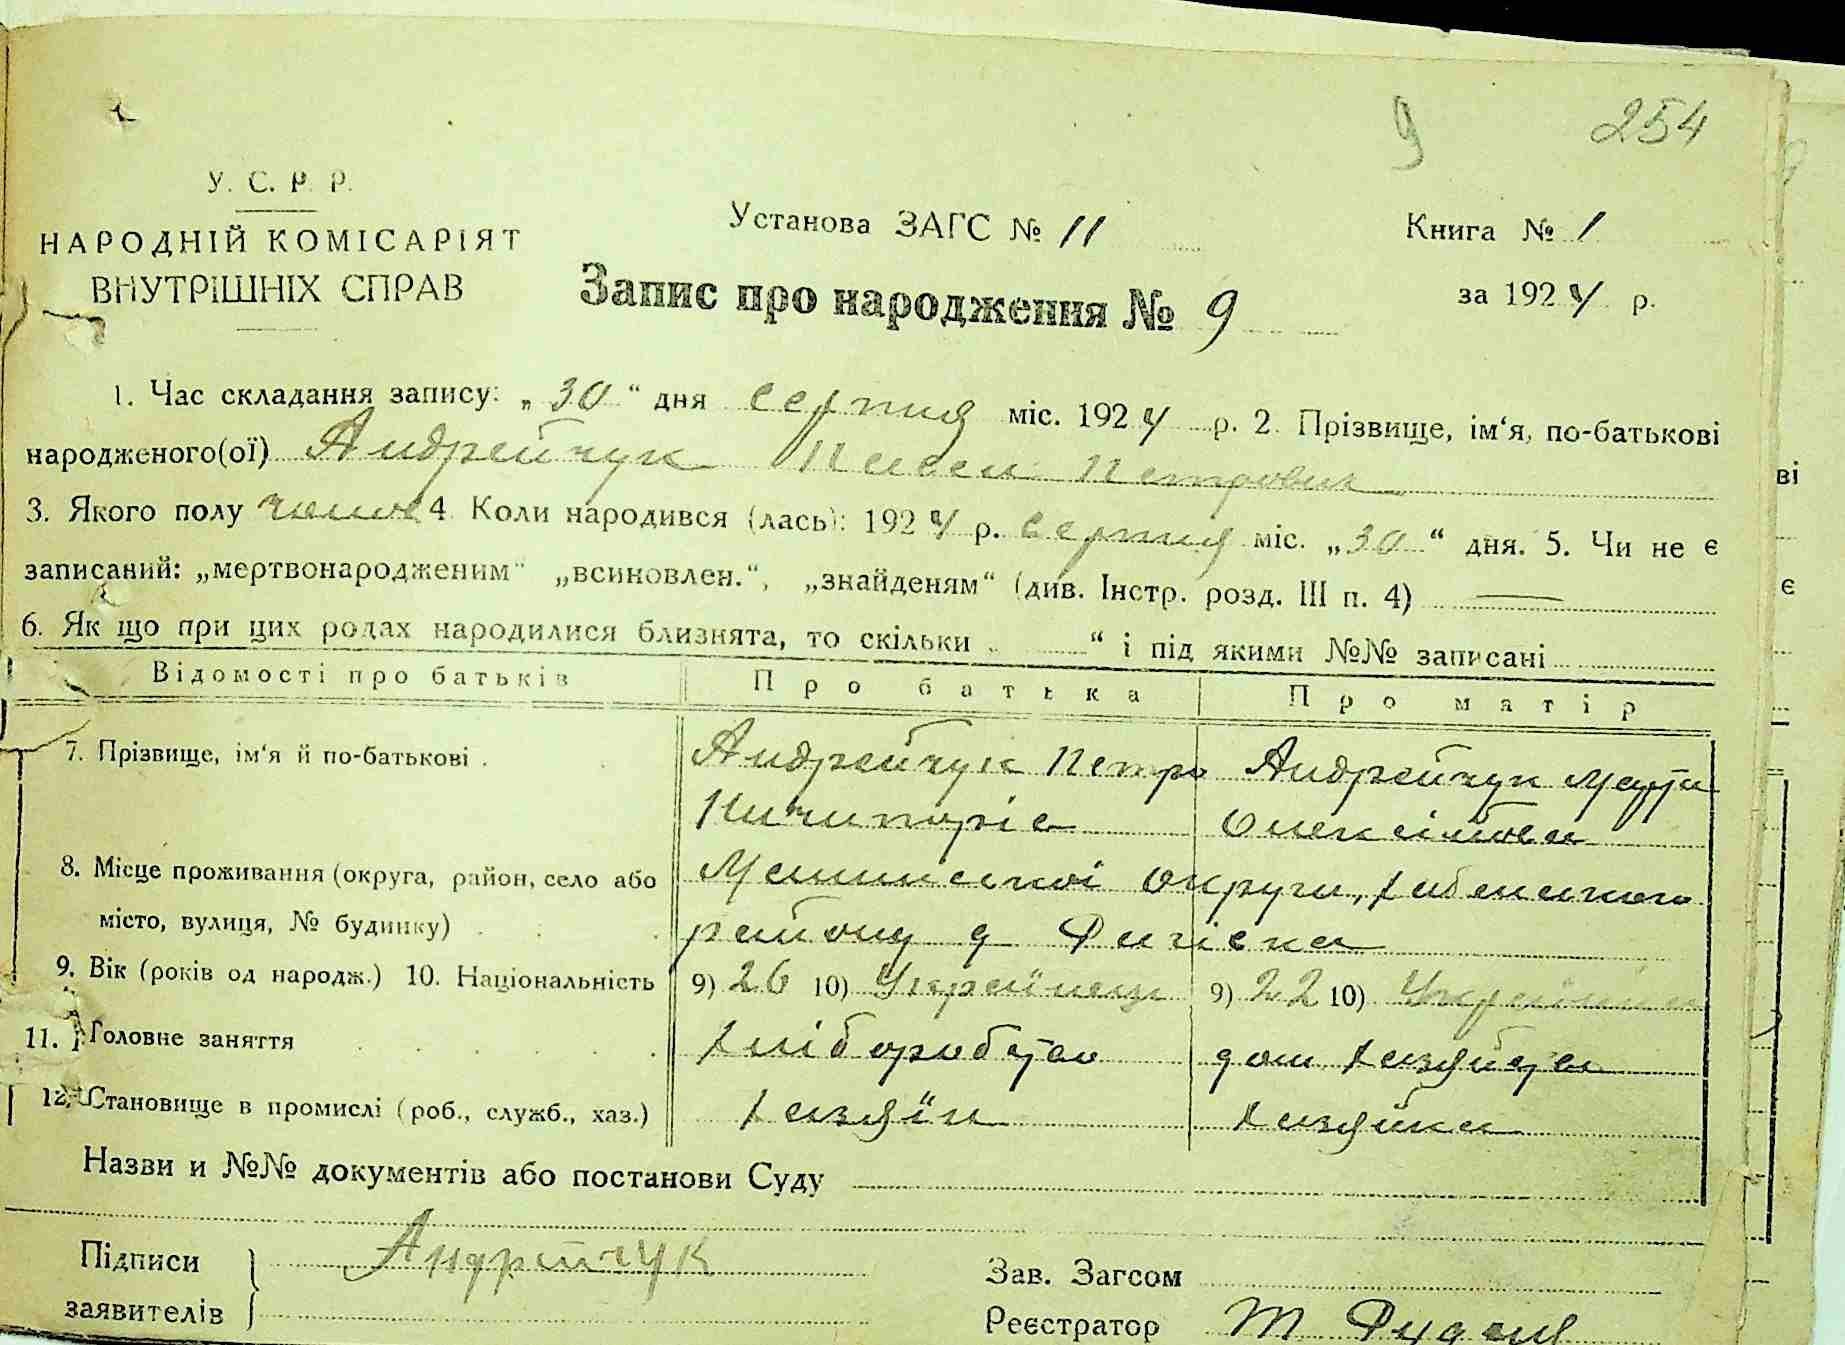 9 254
У. С. Р. Р.
НАРОДНІЙ КОМІСАРІЯТ
ВНУТРІШНІХ СПРАВ
Установа ЗАГС № 11
Книга № 1
Запис про народження № 9
за 1924 р.
1. Час складання запису: „30“ дня серпня міс. 1924 р. 2. Прізвище, ім‘я, по-батькові
народженого(ої) Андрейчук Петрович
3. Якого полу 4. Коли народився (лась): 1924 р. серпня міс. „30“ дня. 5. Чи не є
записаний: „мертвонародженим“ „всиновлен.“, „знайденям“ (див. Інстр. розд. III п. 4) —
6. Як що при цих родах народилися близнята, то скільки „ “ і під якими №№ записані
Відомості про батьків Про батька Про матір
7. Прізвище, ім‘я й по-батькові Андрейчук Петро Андрейчук
Ничипорів Олексіївна
8. Місце проживання (округа, район, село або округи,
місто, вулиця, № будинку) району
9. Вік (років од народж.) 10. Національність 9) 26 10) Українець 9) 22 10) Українка
11. Головне заняття хліборобство дом. хазяйство
12. Становище в промислі (роб., служб., хаз.) хазяїн хазяйка
Назви и №№ документів або постанови Суду
Підписи Андрейчук
заявителів
Зав. Загсом
Реєстратор